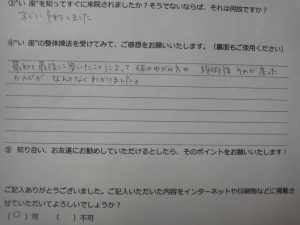 ③"い 座"を知ってすぐに来院されましたか？そうでないならば、それは何故ですか？
すぐに予約しました
④"い 座"の整体操法を受けてみて、ご感想をお願いいたします。（裏面もご使用ください）
最初と最後に歩いたことによって 体のゆがみ方や 施術後 それが戻った
かんじが なんとなくわかりました。
⑤ 知り合い、お友達にお勧めしていただけるとしたら、そのポイントをお願いします！
ご記入ありがとうございました。ご記入いただいた内容をインターネットや印刷物などに掲載さ
せていただいてよろしいでしょうか？
（○）可 （ ）不可